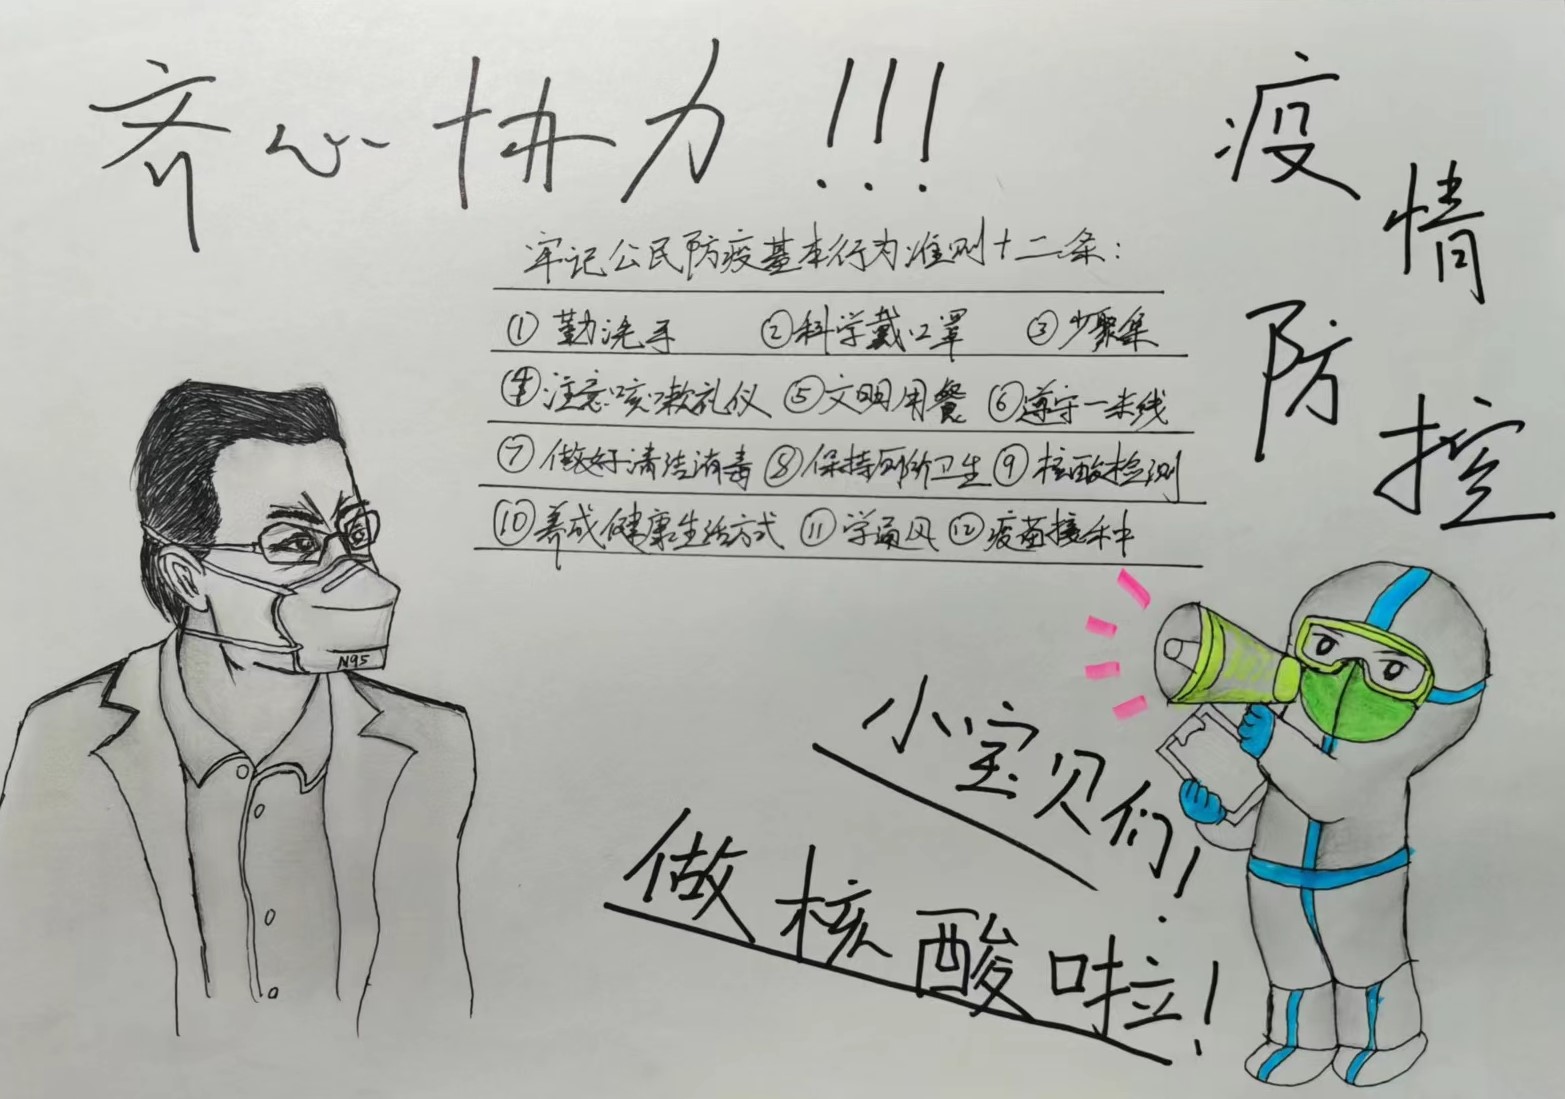 齐心协力!!!
疫情
防控
牢记公民防疫基本行为准则十二条:
①勤洗手 ②科学戴口罩 ③少聚集
④注意咳嗽礼仪 ⑤文明用餐 ⑥遵守一米线
⑦做好清洁消毒 ⑧保持厕所卫生 ⑨核酸检测
⑩养成健康生活方式 ⑪学通风 ⑫疫苗接种
N95
小宝贝们!
做核酸啦!